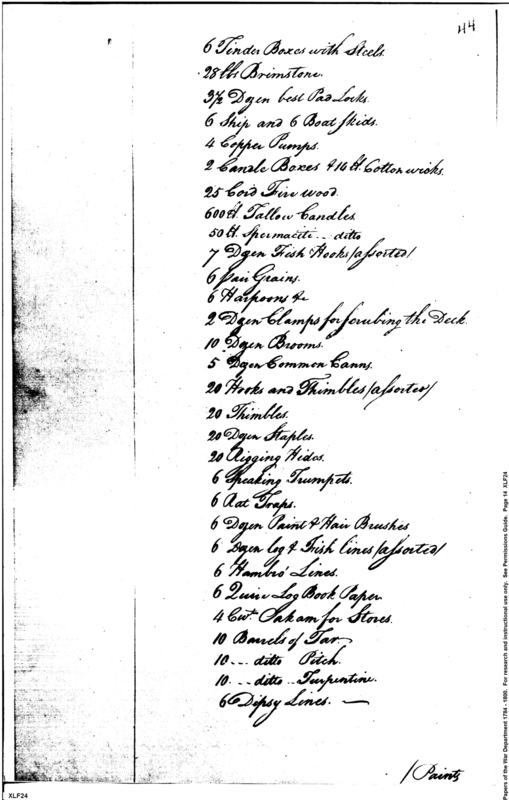 44
6 Tinder Boxes with Steels.
28 lbs Brimstone.
3½ Dozen best Pad Locks.
6 Ship and 6 Boat Skids.
4 Copper Pumps.
2 Candle Boxes & 14 lt. Cotton wicks.
25 Cord Fire wood.
600 lt. Tallow Candles
50 lt. Spermacite... ditto
7 Dozen Fish Hooks/assorted/
6 pair Grains.
6 Harpoons &c
2 Dozen Clamps for scrubing the Deck.
10 Dozen Brooms.
5 Dozen Common Canns.
20 Hooks and Thimbles/assorted/
20 Thimbles.
20 Dozen Staples.
20 Rigging Hides.
6 Speaking Trumpets.
6 Rat Traps.
6 Dozen Paint & Hair Brushes
6 Dozen log & Fish lines/assorted/
6 Hambro' Lines.
6 Quire Log Book Paper
4 Cwt. Oakam for Stores.
10 Barrels of Tar
10 ... ditto Pitch.
10 ... ditto .. Turpentine.
6 Dipsy Lines. —
/Paints
XLF24
Papers of the War Department 1784 - 1800. For research and instructional use only. See Permissions Guide. Page 14 XLF24